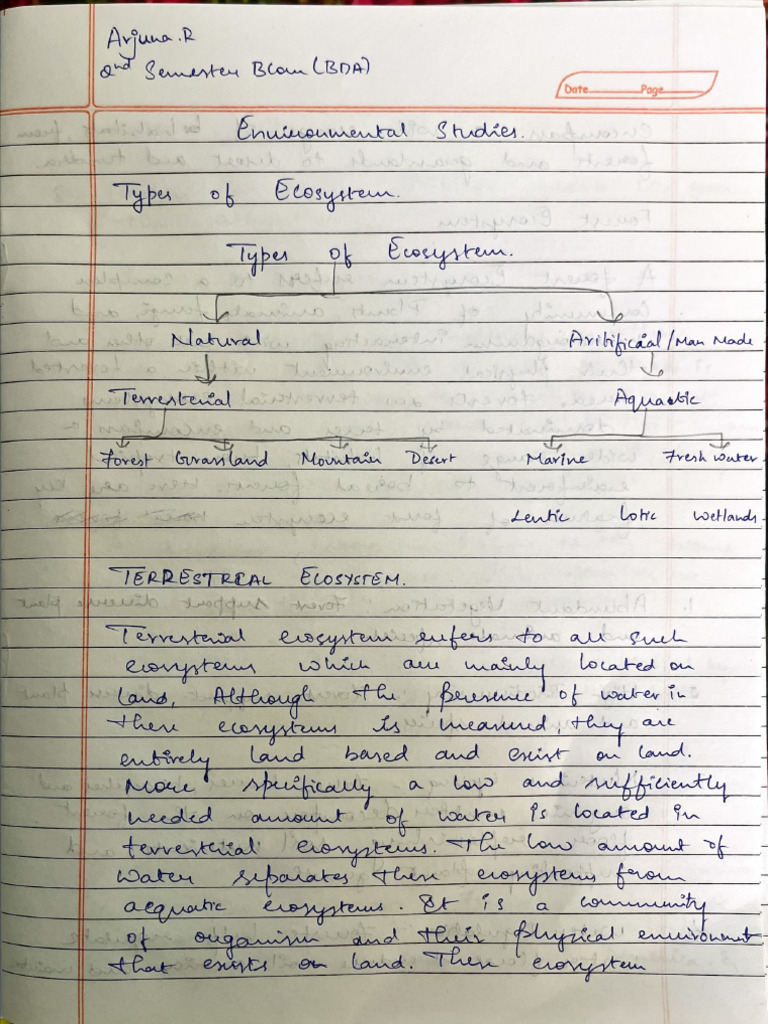 Arjuna.R
2nd Semester Bcom (BDA)
Date Page
Environmental Studies.
Types of Ecosystem.
Types of Ecosystem.
Natural Aritificial / Man Made
Terresterial Aquaotic
Forest Grassland Mountain Desert Marine Fresh water
Lentic Lotic Wetlands
TERRESTREAL ECOSYSTEM.
Terresterial ecosystem refers to all such
ecosystems which are mainly located on
land, Although the presence of water in
these ecosystems is measured, they are
entirely land based and exist on land.
More specifically a low and sufficiently
needed amount of water is located in
terresterial ecosystems. The low amount of
water separates these ecosystems from
acquatic ecosystems. It is a community
of organism and their physical environment
that exists on land. These ecosystem